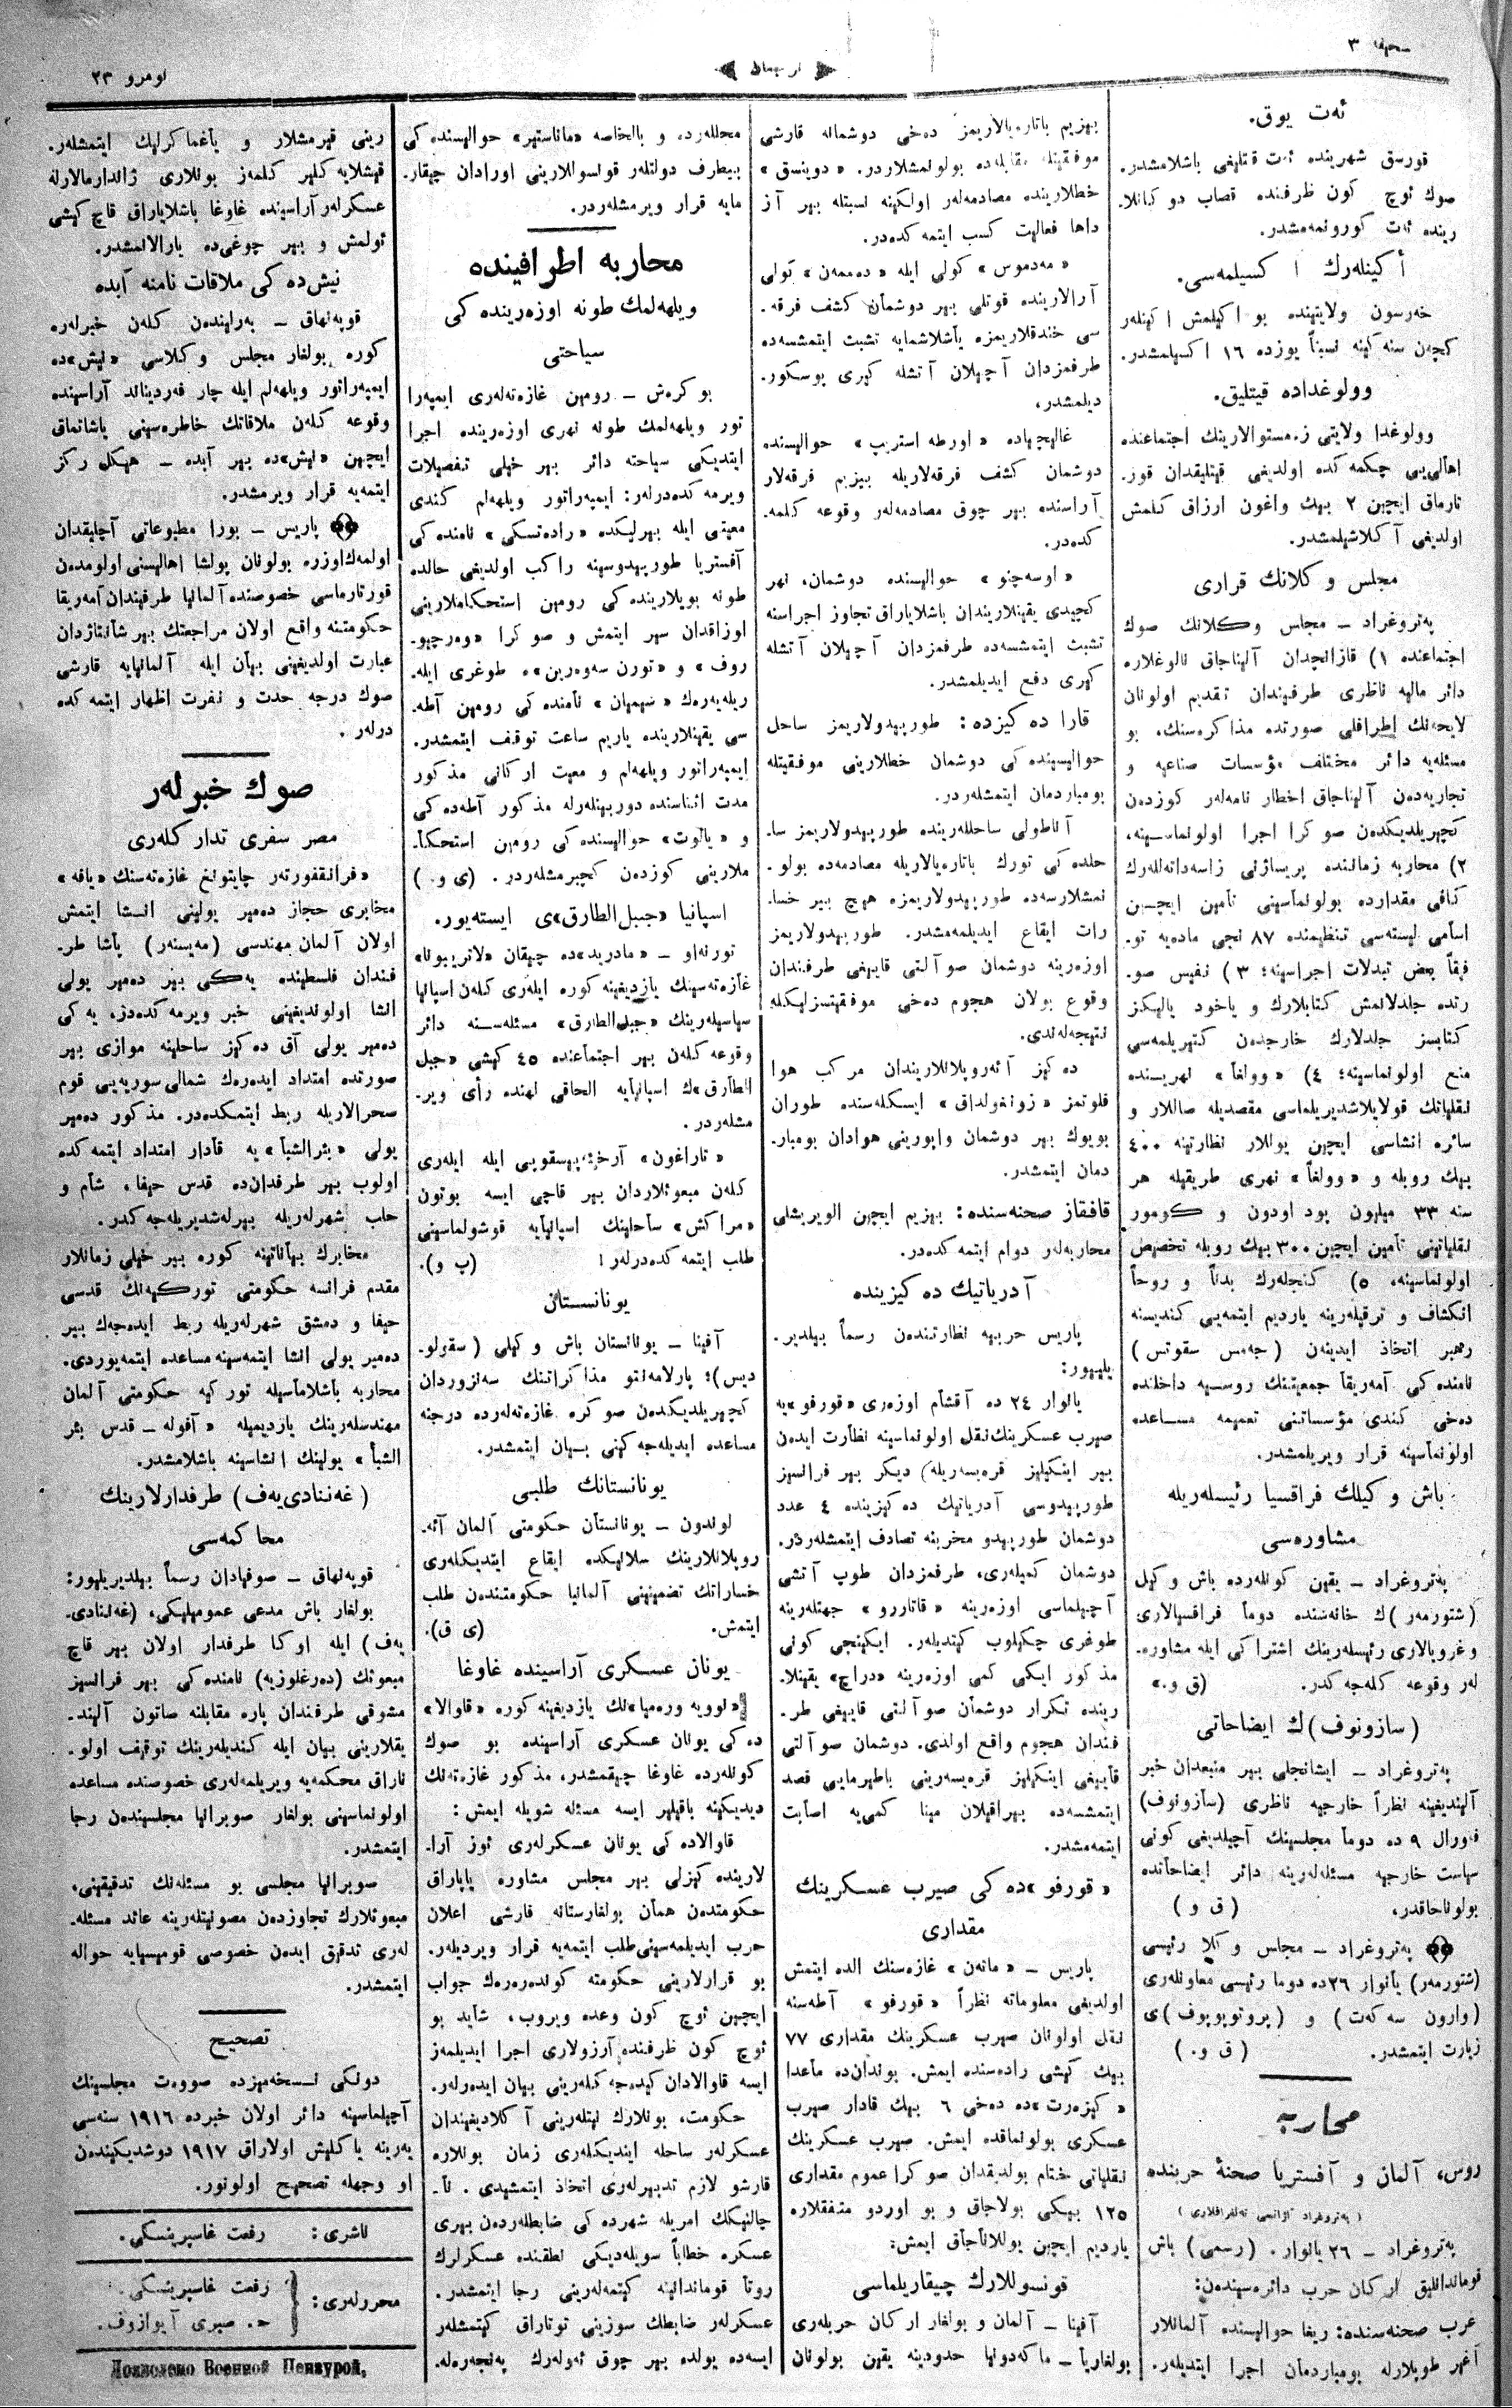 صحیفه ۳
ترجمان
نومرو ۲۳
ئەت یوق.
قورسق شهرینده ئەت قتلیغی باشلامشدر.
صوڭ ئوچ كون ظرفنده قصاب دوكانلا-
رینده ئەت كورونمەمشدر.
أكینلەرك اكسیلمەسی.
خەرسون ولایتینده بو اكیلمش اكینلەر
كچەن سنەكینە نسبتاً یوزده ۱۶ اكسیلمشدر.
وولوغداده قیتلیق.
وولوغدا ولایتی زمستوالارینك اجتماعنده
اهالی‌یی چكمەكده اولدیغی قیتلیقدان قور-
تارماق ایچین ۲ بیك واغون ارزاق كلمش
اولدیغی آكلاشیلمشدر.
مجلس وكلانك قراری
پەتروغراد ـ مجلس وكلانك صوڭ
اجتماعنده ۱) قازانجدان آلیناجاق نالوغلاره
دائر مالیه ناظری طرفیندان تقدیم اولونان
لایحەنك اطرافلی صورتده مذاكرەسنك، بو
مسئلەیه دائر مختلف مؤسسات صناعیه و
تجاریەدەن آلیناجاق اخطارنامەلەر كوزدەن
كچیریلدیكدەن صوكرا اجرا اولونماسینه،
۲) محاربه زماننده پریساژنی زاسەداتەللەرك
كافی مقدارده بولونماسینی تأمین ایچین
اسامی لیستەسی تنظیمنده ۸۷ نجی مادەیه تو-
فیقاً بعض تبدلات اجراسینه؛ ۳) نفیس صو-
رتده جلدلانمش كتابلارك و یاخود یالیكز
كتابسز جلدلارك خارجدەن كتیریلمەسی
منع اولونماسینه؛ ۴) «وولغا» نهرینده
نقلیاتك قولایلاشدیریلماسی مقصدیله صاللار و
سائره انشاسی ایچین یوللار نظارتینه ۴۰۰
بیك روبله و «وولغا» نهری طریقیله هر
سنه ۳۳ میلیون پود اودون و كومور
نقلیاتینی تأمین ایچین ۳۰۰ بیك روبله تخصیص
اولونماسینه، ۵) كنجلەرك بدناً و روحاً
انكشاف و ترقیلەرینه یاردیم ایتمەیی كندیسنه
رهبر اتخاذ ایدینەن (جەمس سقوتس)
نامنده‌كی آمەریقا جمعیتنك روسیه داخلنده
دەخی كندی مؤسساتنی تعمیمه مساعده
اولونماسینه قرار ویریلمشدر.
باش وكیلك فراقسیا رئیسلەریله
مشاورەسی
پەتروغراد ـ یقین كونلەرده باش وكیل
(شتورمەر)ك خانەسنده دوما فراقسیالاری
و غروپالاری رئیسلەرینك اشتراكی ایله مشاوره-
لەر وقوعه كلەجەكدر. (ق و.)
(سازونوف)ك ایضاحاتی
پەتروغراد ـ ایشانجلی بیر منبعدان خبر
آلیندیغینه نظراً خارجیه ناظری (سازونوف)
فورال ۹ ده دوما مجلسینك آچیلدیغی كونی
سیاست خارجیه مسئلەلەرینه دائر ایضاحاتده
بولوناجاقدر. (ق و)
پەتروغراد ـ مجلس وكلا رئیسی
(شتورمەر) یانوار ۲۶ده دوما رئیسی معاونلەری
(وارون سەكەت) و (پروتوپوپوف)ی
زیارت ایتمشدر. (ق و.)
محاربه
روس، آلمان و آفستریا صحنهٔ حربنده
(پەتروغراد آژانسی تەلغرافلاری)
پەتروغراد ـ ۲۶ یانوار. (رسمی) باش
قوماندانلیق اركان حرب دائرەسیندەن:
غرب صحنەسنده: ریغا حوالیسنده آلمانلار
آغیر طوپلارله بومباردمان اجرا ایتدیلەر.
بیزیم باتارەیالاریمز دەخی دوشمانه قارشی
موفقیتله مقابلەده بولونمشلاردر. «دوینسق»
خطلارینده مصادمەلەر اولكینه نسبتله بیر آز
داها فعالیت كسب ایتمەكدەدر.
«مەدموس» كولی ایله «دەممەن» كولی
آرالارینده قوتلی بیر دوشمان كشف فرقه-
سی خندقلاریمزه یاشلاشمایه تشبث ایتمشسەده
طرفمزدان آچیلان آتشله كیری پوسكور-
دیلمشدر.
غالیچیاده «اورطه استریپ» حوالیسنده
دوشمان كشف فرقەلاریله بیزیم فرقەلار
آراسنده بیر چوق مصادمەلەر وقوعه كلمه-
كدەدر.
«اوسەچنو» حوالیسنده دوشمان، نهر
كچیدی یقینلاریندان باشلایاراق تجاوز اجراسنه
تشبث ایتمشسەده طرفمزدان آچیلان آتشله
كیری دفع ایدیلمشدر.
قارا دەكیزده: طورپیدولاریمز ساحل
حوالیسینده‌كی دوشمان خطلارینی موفقیتله
بومباردمان ایتمشلەردر.
آناطولی ساحللەرینده طورپیدولاریمز سا-
حلده‌كی تورك باتارەیالاریله مصادمەده بولو-
نمشلارسەده طورپیدولاریمزه هیچ بیر خسا-
رات ایقاع ایدیلمەمشدر. طورپیدولاریمز
اوزەرینه دوشمان صو آلتی قاییغی طرفندان
وقوع بولان هجوم دەخی موفقیتسزلیكله
نتیجەلەندی.
دەكیز آئەروپلانلاریندان مركب هوا
فلوتمز «زونغولداق» ایسكلەسنده طوران
بویوك بیر دوشمان واپورینی هوادان بومبار-
دمان ایتمشدر.
قافقاز صحنەسنده: بیزیم ایچین الویریشلی
محاربەلەر دوام ایتمەكدەدر.
آدریاتیك دەكیزینده
پاریس حربیه نظارتندەن رسماً بیلدیر-
یلییور:
یانوار ۲۴ ده آقشام اوزەری «قورفو»یه
صیرب عسكرینك نقل اولونماسینه نظارت ایدەن
بیر اینكیلیز قرەیسەریله دیكر بیر فرانسیز
طورپیدوسی آدریاتیك دەكیزینده ۴ عدد
دوشمان طورپیدو مخربنه تصادف ایتمشلەردر.
دوشمان كمیلەری، طرفمزدان طوپ آتشی
آچیلماسی اوزەرینه «قاتاررو» جهتلەرینه
طوغری چكیلوب كیتدیلەر. ایكینجی كونی
مذكور ایكی كمی اوزەرینه «دراچ» یقینلا-
رینده تكرار دوشمان صو آلتی قاییغی طر-
فندان هجوم واقع اولدی. دوشمان صو آلتی
قاییغی اینكیلیز قرەیسەرینی باطیرمایی قصد
ایتمشسەده بیراقیلان مینا كمی‌یه اصابت
ایتمەمشدر.
«قورفو»ده‌كی صیرب عسكرینك
مقداری
پاریس ـ «ماتەن» غازەسنك الده ایتمش
اولدیغی معلوماته نظراً «قورفو» آطەسنه
نقل اولونان صیرب عسكرینك مقداری ۷۷
بیك كیشی رادەسنده ایمش. بوندان‌ده ماعدا
«كیزەرت»ده دەخی ۶ بیك قادار صیرب
عسكری بولونماقده ایمش. صیرب عسكرینك
نقلیاتی ختام بولدیقدان صوكرا عموم مقداری
۱۲۵ بیكی بولاجاق و بو اوردو متفقلاره
یاردیم ایچین یوللاناجاق ایمش.
قونسوللارك چیقاریلماسی
آفینا ـ آلمان و بولغار اركان حربلەری
بولغاریا ـ ماكەدونیا حدودینه یقین بولونان
محللەرده و بالخاصه «ماناستیر» حوالیسنده‌كی
بیطرف دولتلەر قونسوللارینی اورادان چیقار-
مایه قرار ویرمشلەردر.
محاربه اطرافینده
ویلهەلمك طونه اوزەرینده‌كی
سیاحتی
بوكرەش ـ رومین غازەتەلەری ایمپەرا
تور ویلهەلمك طونه نهری اوزەرینده اجرا
ایتدیكی سیاحته دائر بیر خیلی تفصیلات
ویرمەكدەدرلەر: ایمپەراتور ویلهەلم كندی
معیتی ایله بیرلیكده «رادەتسكی» نامنده‌كی
آفستریا طورپیدوسینه راكب اولدیغی حالده
طونه بویلارینده‌كی رومین استحكاملارینی
اوزاقدان سیر ایتمش و صوكرا «وەرچیو-
روف» و «تورن سەوەرین»ه طوغری ایله-
ریلەیەرەك «شیمیان» نامنده‌كی رومین آطه-
سی یقینلارینده یاریم ساعت توقف ایتمشدر.
ایمپەراتور ویلهەلم و معیت اركانی مذكور
مدت اثناسنده دوربینلەرله مذكور آطەده‌كی
و «یالوت» حوالیسنده‌كی رومین استحكا-
ملارینی كوزدەن كچیرمشلەردر. (ی و.)
اسپانیا «جبل الطارق»ی ایستەیور.
تورنەاو ـ «مادرید»ده چیقان «لاتریبونا»
غازەتەسینك یازدیغینه كوره ایلەری كلەن اسپانیا
سیاسیلەرینك «جبل الطارق» مسئلەسنه دائر
وقوعه كلەن بیر اجتماعنده ۴۵ كیشی «جبل
الطارق»ك اسپانیایه الحاقی لهنده رأی ویر-
مشلەردر.
«تاراغون» آرخئپیسقوپی ایله ایلەری
كلەن مبعوثلاردان بیر قاچی ایسه بوتون
«مراكش» ساحلینك اسپانیایه قوشولماسینی
طلب ایتمەكدەدرلەر! (پ و).
یونانستان
آفینا ـ یونانستان باش وكیلی (سقولو-
دیس)؛ پارلامەنتو مذاكراتنك سەنزوردان
كچیریلدیكدەن صوكره غازەتەلەرده درجنه
مساعده ایدیلەجەكنی بیان ایتمشدر.
یونانستانك طلبی
لوندون ـ یونانستان حكومتی آلمان آئه-
روپلانلارینك سلانیكده ایقاع ایتدیكلەری
خساراتك تضمینینی آلمانیا حكومتندەن طلب
ایتمش. (ی ق).
یونان عسكری آراسینده غاوغا
«نوویه ورەمیا»نك یازدیغینه كوره «قاوالا»
ده‌كی یونان عسكری آراسینده بو صوڭ
كونلەرده غاوغا چیقمشدر، مذكور غازەتەنك
دیدیكینه باقیلیر ایسه مسئله شویله ایمش:
قاوالاده‌كی یونان عسكرلەری ئوز آرا-
لارینده كیزلی بیر مجلس مشاوره یاپاراق
حكومتدەن همان بولغارستانه قارشی اعلان
حرب ایدیلمەسینی طلب ایتمەیه قرار ویردیلەر.
بو قرارلارینی حكومته كوندەرەرەك جواب
ایچین ئوچ كون وعده ویروب، شاید بو
ئوچ كون ظرفنده آرزولاری اجرا ایدیلمەز
ایسه قاوالادان كیدەجەكلەرینی بیان ایدەرلەر.
حكومت، بونلارك نیتلەرینی آكلادیغیندان
عسكرلەر ساحله ایندیكلەری زمان بونلاره
قارشو لازم تدبیرلەری اتخاذ ایتمشیدی. نا-
چالنیكك امریله شهرده‌كی ضابطلەردەن بیری
عسكره خطاباً سویلەدیكی نطقنده عسكرلرك
روتا قوماندانینه كیتمەلەرینی رجا ایتمشدر.
عسكرلەر ضابطك سوزینی توتاراق كیتمشلەر
ایسەده یولده بیر چوق ئەولەرك پەنجەرەله-
رینی قیرمشلار و یاغماكرلیك ایتمشلەر.
قیشلایه كلیر كلمەز بونلاری ژاندارمالارله
عسكرلەر آراسینده غاوغا باشلایاراق قاچ كیشی
ئولمش و بیر چوغی‌ده یارالانمشدر.
نیش‌ده‌كی ملاقات نامنه آبده
قوپەنهاق ـ بەرلیندەن كلەن خبرلەره
كوره بولغار مجلس وكلاسی «نیش»ده
ایمپەراتور ویلهەلم ایله چار فەردیناند آراسینده
وقوعه كلەن ملاقاتك خاطرەسینی یاشاتماق
ایچین «نیش»ده بیر آبده ـ هیكل ركز
ایتمەیه قرار ویرمشدر.
پاریس ـ بورا مطبوعاتی آچلیقدان
اولمەك‌اوزره بولونان پولشا اهالیسنی اولومدەن
قورتارماسی خصوصنده آلمانیا طرفیندان آمەریقا
حكومتنه واقع اولان مراجعتك بیر شانتاژدان
عبارت اولدیغینی بیان ایله آلمانیایه قارشی
صوڭ درجه حدت و نفرت اظهار ایتمەكده
درلەر.
صوڭ خبرلەر
مصر سفری تداركلەری
«فرانقفورتەر چایتونغ غازەتەسنك «یافه»
مخابری حجاز دەمیر یولینی انشا ایتمش
اولان آلمان مهندسی (مەیسنەر) پاشا طر-
فندان فلسطینده یەكی بیر دەمیر یولی
انشا اولوندیغینی خبر ویرمەكدەدر، یەكی
دەمیر یولی آق دەكز ساحلینه موازی بیر
صورتده امتداد ایدەرەك شمالی سوریەیی قوم
صحرالاریله ربط ایتمكدەدر. مذكور دەمیر
یولی «بئرالشبأ» یه قادار امتداد ایتمەكده
اولوب بیر طرفدان‌ده قدس حیفا، شام و
حلب شهرلەریله بیرلەشدیریلەجەكدر.
مخابرك بیاناتینه كوره بیر خیلی زمانلار
مقدم فرانسه حكومتی توركیەنك قدسی
حیفا و دمشق شهرلەریله ربط ایدەجەك بیر
دەمیر یولی انشا ایتمەسینه مساعده ایتمەیوردی.
محاربه باشلاماسیله توركیه حكومتی آلمان
مهندسلەرینك یاردیمیله «آفوله ـ قدس بئر
الشبأ» یولینك انشاسینه باشلامشدر.
(غەننادی‌یەف) طرفدارلارینك
محاكمەسی
قوپەنهاق ـ صوفیادان رسماً بیلدیریلیور:
بولغار باش مدعی عمومیلیكی، (غەننادی-
یەف) ایله اوكا طرفدار اولان بیر قاچ
مبعوثك (دەرغلوزیه) نامنده‌كی بیر فرانسیز
مشوقی طرفندان پاره مقابلنه صاتون آلیند-
یقلارینی بیان ایله كندیلەرینك توقیف اولو-
ناراق محكمەیه ویریلمەلەری خصوصنده مساعده
اولونماسینی بولغار صوبرانیا مجلسیندەن رجا
ایتمشدر.
صوبرانیا مجلسی بو مسئلەنك تدقیقینی،
مبعوثلارك تجاوزدەن مصونیتلەرینه عائد مسئله-
لەری تدقیق ایدەن خصوصی قومیسیایه حواله
ایتمشدر.
تصحیح
دونكی نسخەمیزده صووەت مجلسینك
آچیلماسینه دائر اولان خبرده ۱۹۱۶ سنەسی
یەرینه یاكلیش اولاراق ۱۹۱۷ دوشدیكیندەن
او وجهله تصحیح اولونور.
ناشری: رفعت غاسپرینسكی.
محررلەری: رفعت غاسپرینسكی.
ح. صبری آیوازوف.
Дозволено Военной Цензурой.